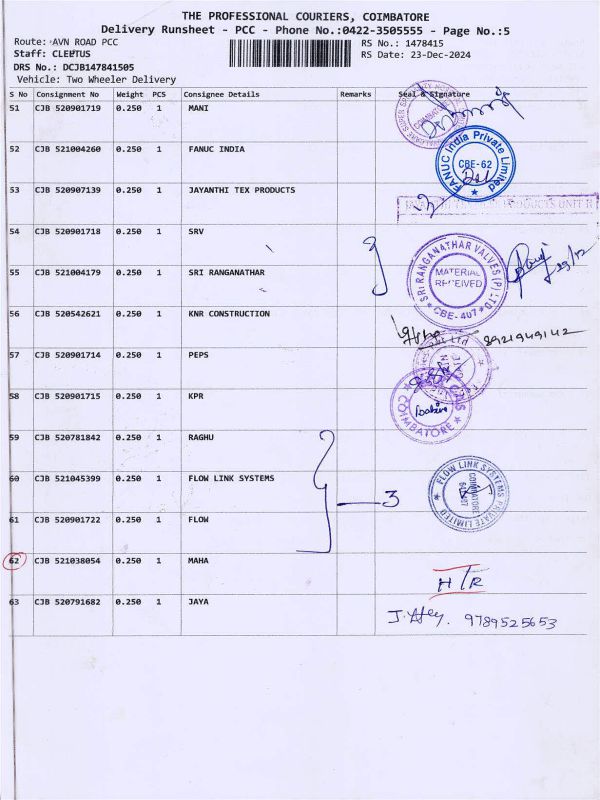 THE PROFESSIONAL COURIERS, COIMBATORE
Delivery Runsheet - PCC - Phone No.:0422-3505555 - Page No.:5
Route: AVN ROAD PCC RS No.: 1478415
Staff: CLEETUS RS Date: 23-Dec-2024
DRS No.: DCJB147841505
Vehicle: Two Wheeler Delivery
S No Consignment No Weight PCS Consignee Details Remarks Seal & Signature
51 CJB 520901719 0.250 1 MANI
COIMBATORE
52 CJB 521004260 0.250 1 FANUC INDIA
FANUC India Private Limited
CBE-62
53 CJB 520907139 0.250 1 JAYANTHI TEX PRODUCTS
54 CJB 520901718 0.250 1 SRV
55 CJB 521004179 0.250 1 SRI RANGANATHAR
SRI RANGANATHAR VALVES (P) LTD
MATERIAL RECEIVED
CBE-407
23/12
56 CJB 520542621 0.250 1 KNR CONSTRUCTION
8921949142
57 CJB 520901714 0.250 1 PEPS
58 CJB 520901715 0.250 1 KPR
COIMBATORE
59 CJB 520781842 0.250 1 RAGHU
60 CJB 521045399 0.250 1 FLOW LINK SYSTEMS
FLOW LINK SYSTEMS PRIVATE LIMITED
COIMBATORE
3
61 CJB 520901722 0.250 1 FLOW
62 CJB 521038054 0.250 1 MAHA
H/R
63 CJB 520791682 0.250 1 JAYA
9789525653